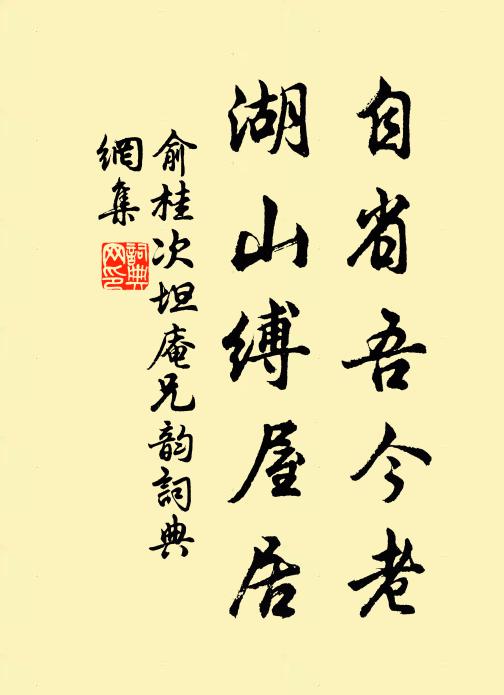 自省吾今老
湖山缚屋居
俞桂次坦庵兄韵詞典
網集
詞典網印